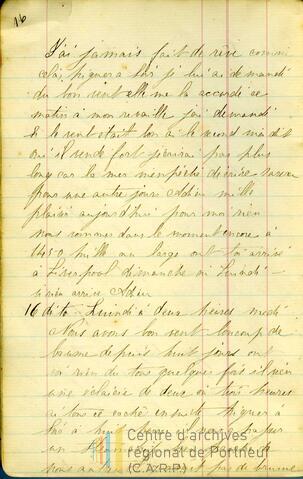 16
J'ai jamais fait de rive comme
Ca, je lui ai demandé
du bon vent elle me la accordé ce
matin a mon reveille jai demandé
Si le vent etait bon ai le second ma dit
oui il vende fort j'ecrirai pas plus
long car la mer m'enpeche decrire
pour une autre jours Adieu mille
plaisir aujourd'hui pour moi rien
nous sommes dans le moment encore a
1450 mille au large ont va arrivé
a Liverpool dimanche ou Lundi -
Adieu
16 dito - Lundi a deux heures medi
Nous avons bon vent boucoup de
brume depuis huit jours ont
voi rien du tous quelques fois il vien
une eclaircie de deux ou trois heures
ai tous ce cache ensuite
a huit heure
un
nous de brume
Centre d'archives
régional de Portneuf
(C.A.R.P.)